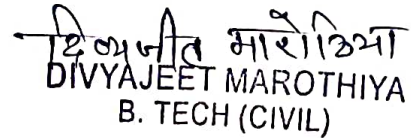 दिव्यजीत मारोठिया
DIVYAJEET MAROTHIYA
B. TECH (CIVIL)